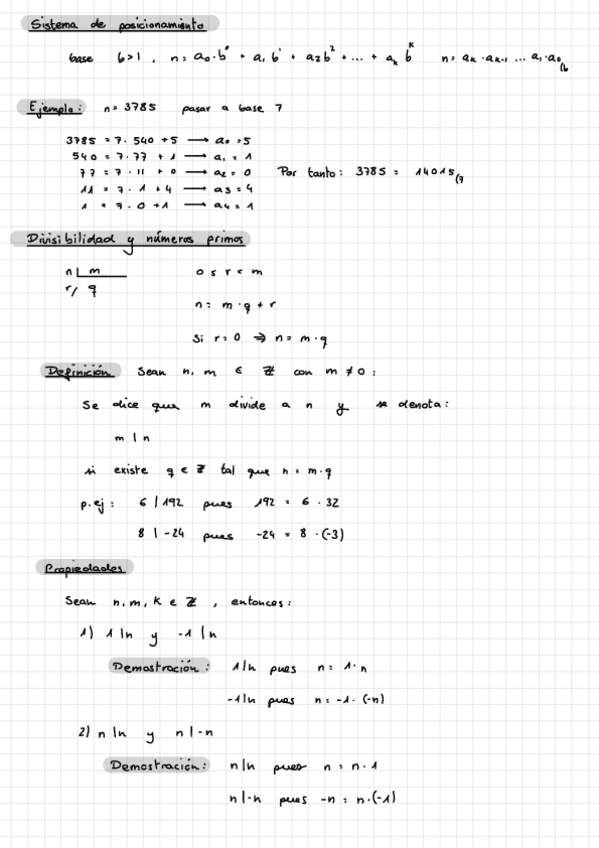 Sistema de posicionamiento
base b>1, n = a₀·b⁰ + a₁b¹ + a₂b² + ... + aₖ bᵏ n = aₖ·aₖ₋₁ ... a₁·a₀₍b
Ejemplo: n = 3785 pasar a base 7
3785 = 7·540 + 5 → a₀ = 5
540 = 7·77 + 1 → a₁ = 1
77 = 7·11 + 0 → a₂ = 0 Por tanto: 3785 = 14015₍₇
11 = 7·1 + 4 → a₃ = 4
1 = 7·0 + 1 → a₄ = 1
Divisibilidad y números primos
n | m 0 ≤ r < m
r/ q
n = m·q + r
Si r = 0 ⇒ n = m·q
Definición Sean n, m ∈ ℤ con m ≠ 0:
Se dice que m divide a n y se denota:
m | n
si existe q ∈ ℤ tal que n = m·q
p.ej: 6 | 192 pues 192 = 6 · 32
8 | -24 pues -24 = 8 · (-3)
Propiedades
Sean n, m, k ∈ ℤ, entonces:
1) 1 | n y -1 | n
Demostración: 1 | n pues n = 1·n
-1 | n pues n = -1·(-n)
2) n | n y n | -n
Demostración: n | n pues n = n·1
n | -n pues -n = n·(-1)